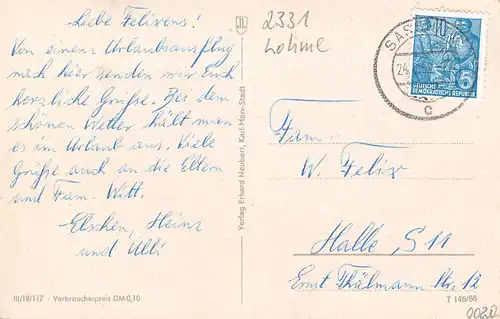 Liebe Felixens!
Von einem Urlaubsausflug
nach hier senden wir Euch
herzliche Grüße. Bei dem
schönen Wetter hält man
es im Urlaub aus. Viele
Grüße auch an die Eltern
und Fam. Witt.
Elschen, Heinz
und Ulli
III/18/117 - Verbraucherpreis DM 0,10
Verlag Erhard Neubert, Karl-Marx-Stadt
2331
Lohme
SASS
24.
C
DEUTSCHE
DEMOKRATISCHE REPUBLIK
Fam.
W. Felix
Halle, S 11
Ernst Thälmann Str. 12
T 146/56
0020